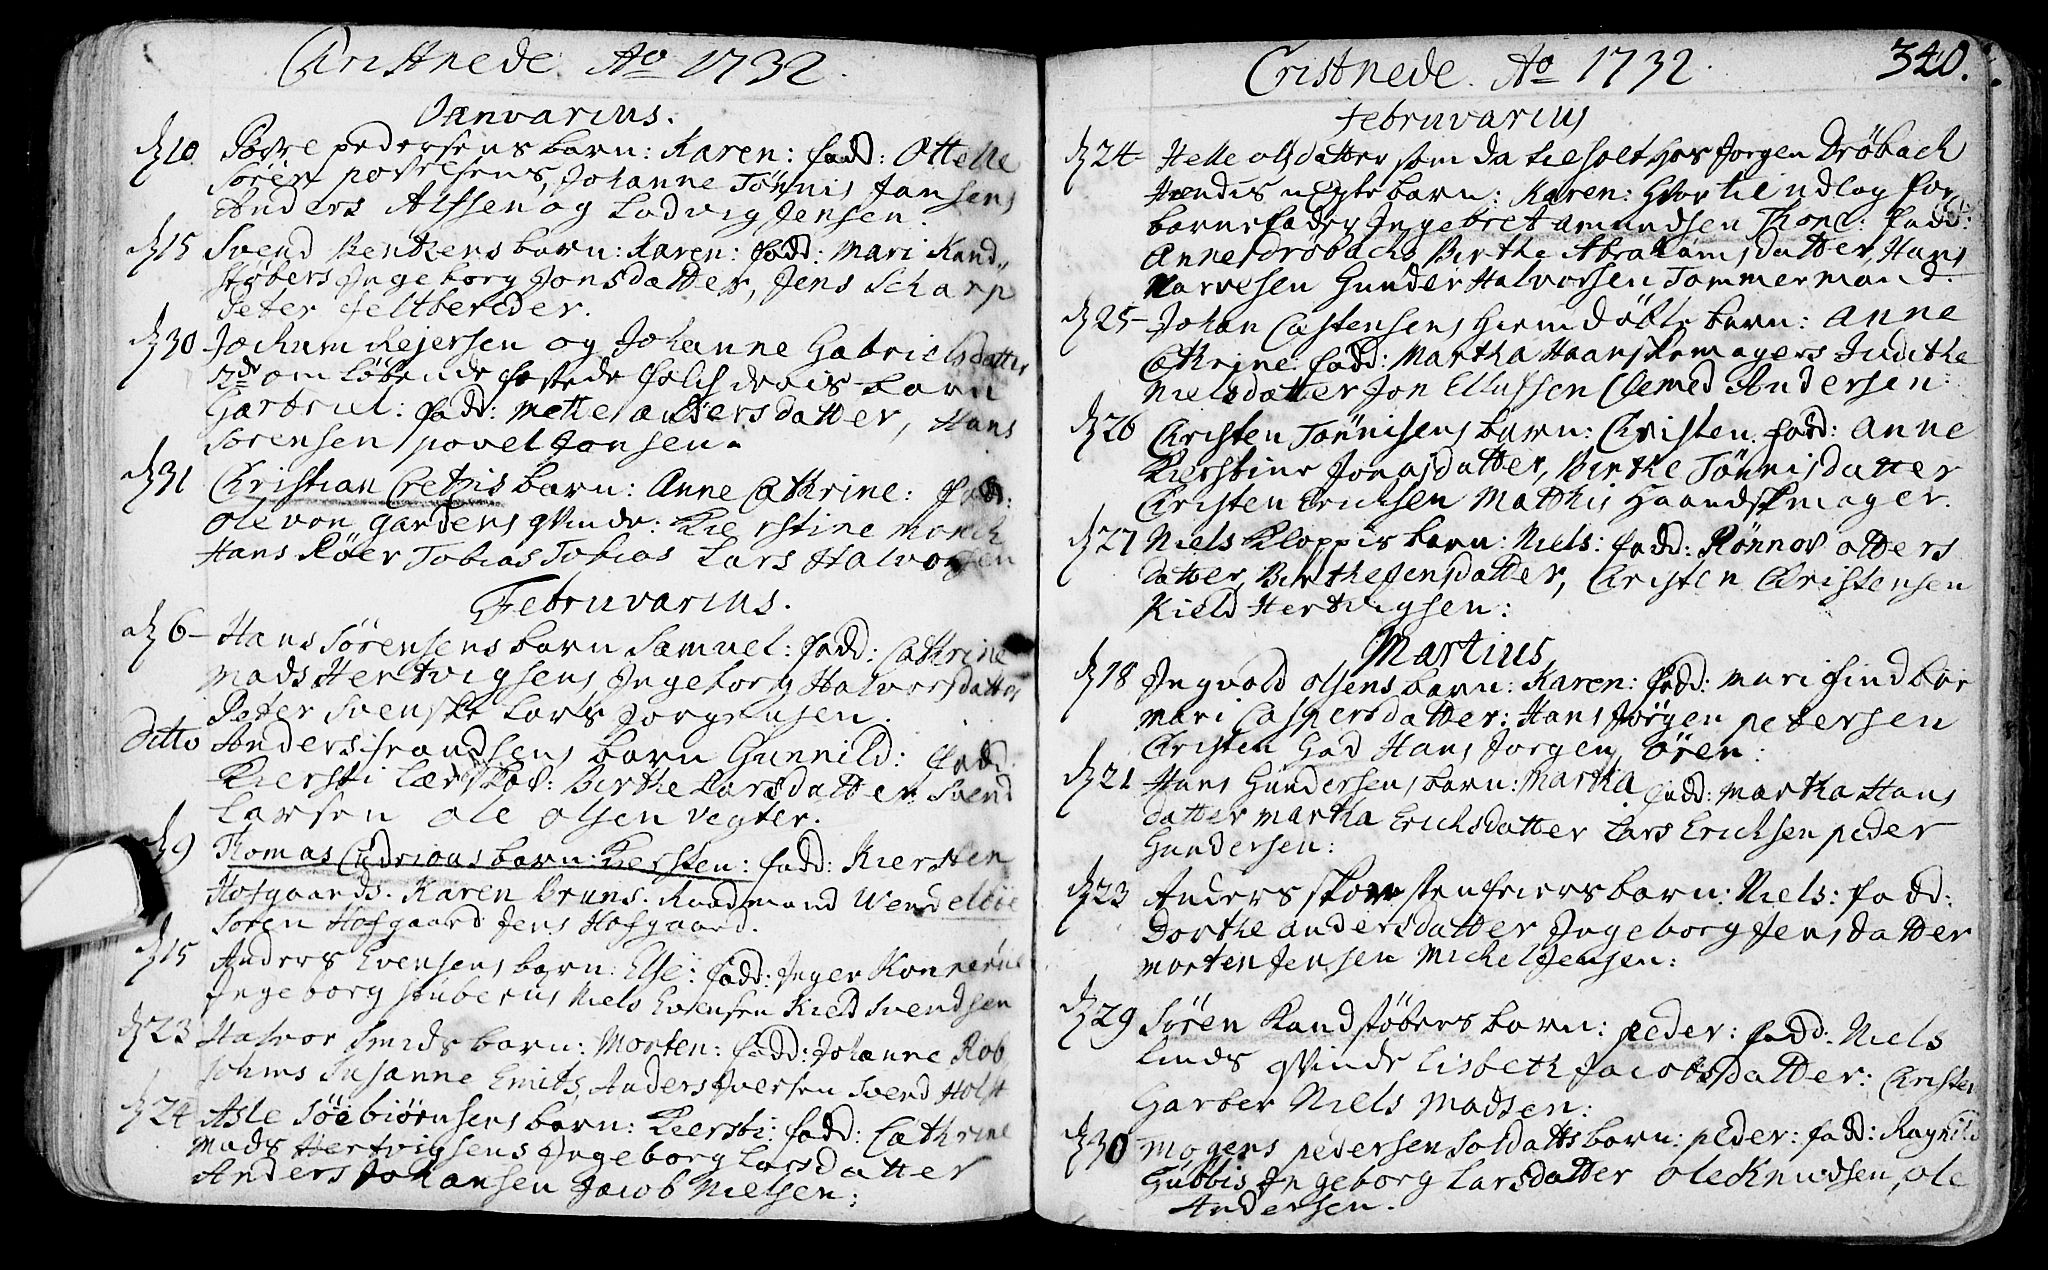 Christnede. Ao 1732.
Janvarius.
d 10. Povre pedersens barn: Karen: fadd: Ottelle
Sören povelsens, Johanne Tönnis Jansens
Anders Alfsen og Ludvig Jensen.
d 15 Svend Bentzens barn: Karen: fadd: Mari Kand-
støbers Ingeborg Jonsdatter, Jens Scharp
Peter feltbereder.
d 30 Jochum Rejersen og Johanne Gabrielsdatter
2de om Løbende fastede folch deris barn
Garbriel: fadd: Mette andersdatter, Hans
Sørensen povel Jonsen.
d 31 Christian Cretzis barn: Anne Cathrine: fadd:
Ole von gardens qvinde: Kierstine Monch
Hans Röer Tobias Tobias Lars Halvorsen
Februvarius.
d 6 - Hans Sörensens barn Samuel: fadd: Cathrine
Mads Hertvigsens Ingeborg Halvorsdatter
Peter Svenske Lars Jorgensen.
ditto Anders frandsens barn Gunnild: fadd:
Kiersti: Birthe Larsdatter Svend
Larsen ole olsen vegter.
d 9 Thomas barn: Kiersten: fadd: Kiersten
Hofgaards. Karen Bruns. Raadmand Wendelboe
Soren Hofgaard Jens Hofgaard.
d 15 Anders Evensens barn: Else: fadd: Inger
Ingeborg stuberus Niels Evensen Kield Svendsen
d 23 Halvor Smids barn: Morten: fadd: Johanne Rob
Johms Susanne Smits, Anders Iversen Svend Holst
d 24 Asle Söebiörnsens barn: Kiersti: fadd: Cathrine
Mads Hertvigsens Ingeborg Larsdatter
Anders Johansen Jacob Nielsen:
Cristnede. Ao 1732.
340.
Februvarius
d 24 - Helle olsdatter som da tilholt hos Jorgen Dröbach
Hendis uEgte barn: Karen: Hvor til udlag for
barnefader Ingebret amundsen Thone: fadd:
Anne dröbachs Birthe Abrahamsdatter, Hans
Narvesen Gunder Halvorsen Tømmermand.
d 25 - Johan Castensens Hiemdöbte barn: Anne
Cathrine. fadd: Martha Haandskemagers Judithe
Nielsdatter Jon Ellufsen Clemed Andersen:
d 26 Christen Tönnisens barn: Christen. fadd: Anne
Kierstine Jonasdatter, Birthe Tönnisdatter
Christen Erichsen Matthis Haandskmager.
d 27 Niels Kloppis barn: Niels: fadd: Rönnov otters
datter, Birthe Jensdatter, Christen Christensen
Kield Hertvigsen:
Martius
d 18 Ingvold olsens barn: Karen: fadd: mari findboe
mari Caspersdatter: Hans Jörgen petersen
Christen Gad Hans Jorgen Sören:
d 21 Hans Gundersens barn: Martha fadd: Martha Hans
datter Martha Erichsdatter Lars Erichsen peder
Gundersen:
d 23 Anders skorstenfeiers barn: Niels: fadd:
Dorthe andersdatter Ingeborg Jensdatter
Morten Jensen Michel Jensen:
d 29 Sören Kandstöbers barn: peder: fadd: Niels
Linds qvinde Lisbeth Jacobsdatter: Christen
Garber Niels Madsen:
d 30 Mogens pedersen Soldatts barn: peder: fadd: Ragnild
Gubbis Ingeborg Larsdatter ole Knudsen, ole
Andersen.